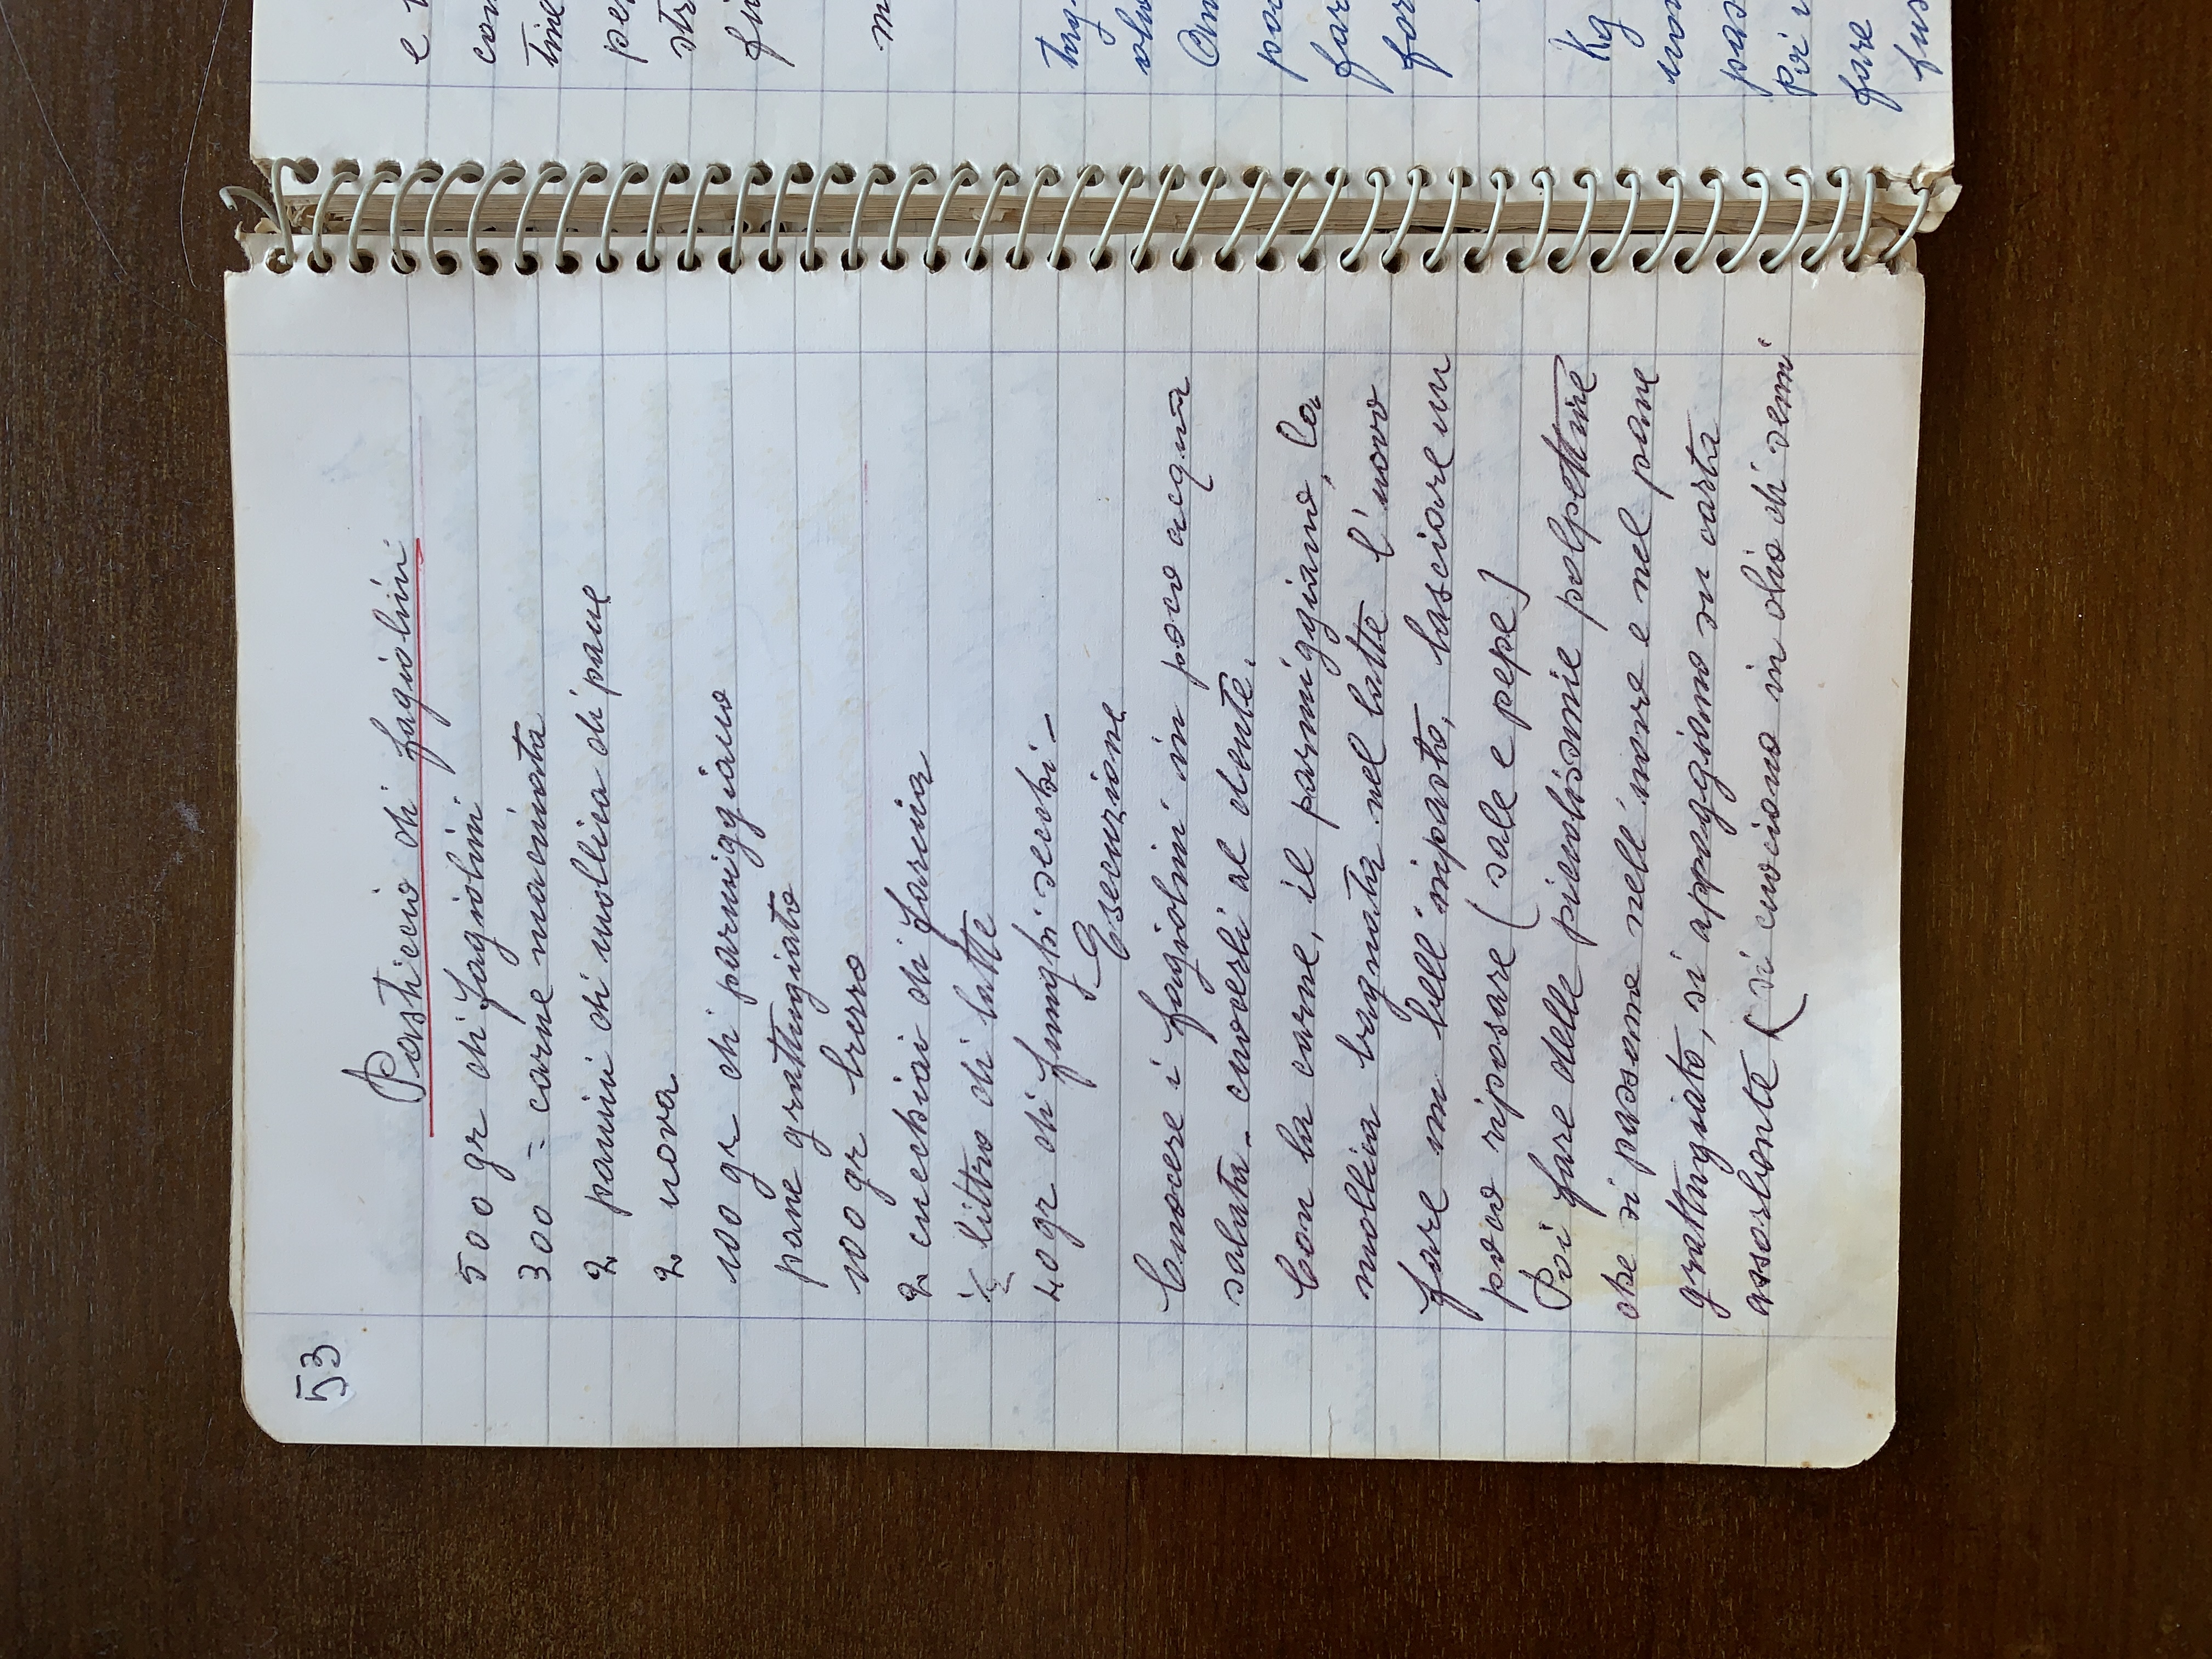 53
Pasticcio di fagiolini
500 gr di fagiolini
300 = carne macinata
2 panini di mollica di pane
2 uova
100 gr di parmiggiano
pane grattugiato
100 gr burro
2 cucchiai di farina
½ littro di latte
40 gr di funghi secchi -
Esecuzione
Cuocere i fagiolini in poco acqua
salata - cuocerli al dente.
Con la carne, il parmiggiano, la
mollica bagnata nel latte l'uovo
fare un bell'inpasto, lasciare un
poco riposare (sale e pepe)
Poi fare delle piccolissime polpettine
che si passano nell'uovo e nel pane
grattugiato, si appoggiano su carta
assorbente (si cuociono in olio di semi
e
con
tine
per
fu
m
tag-
far
for
Kg
Poi
fare
fus